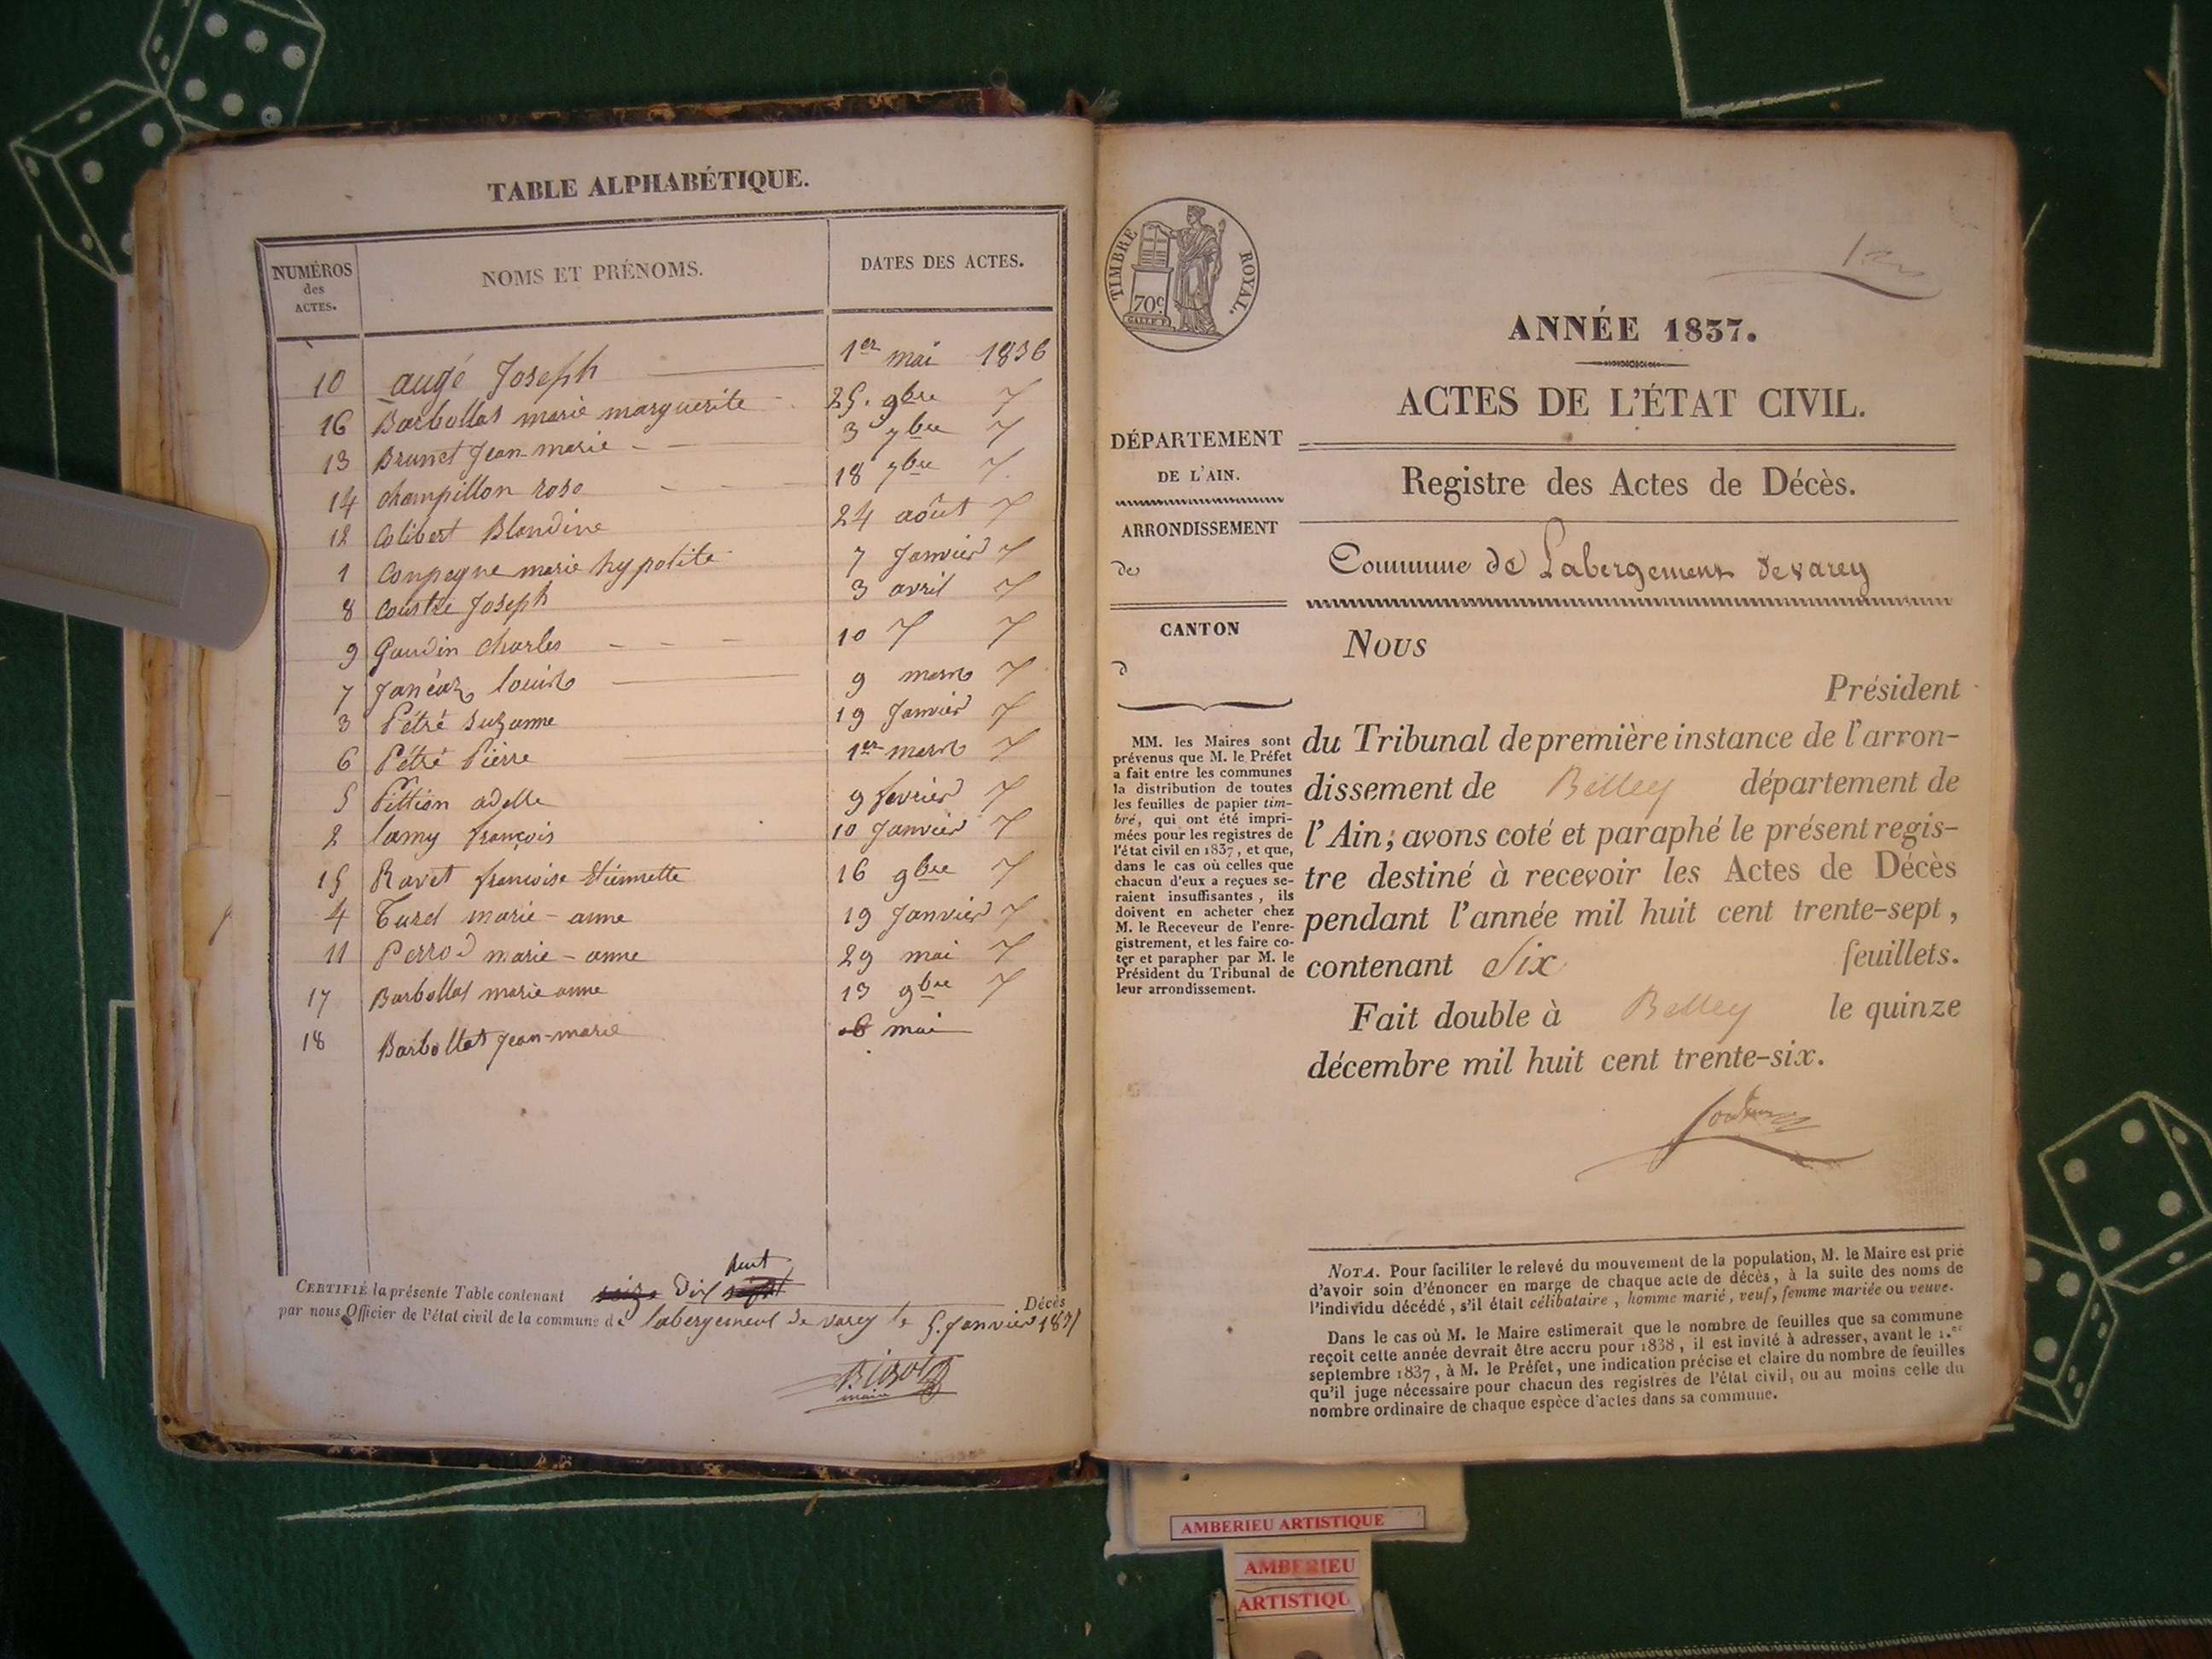 TABLE ALPHABÉTIQUE.
NUMÉROS des ACTES.
NOMS ET PRÉNOMS.
DATES DES ACTES.
10 augé Joseph 1er mai 1836
16 Barbollat marie marguerite 25. 9bre 7
13 Brunet Jean-marie 3 7bre 7
14 champillon rose 18 7bre 7
12 Colibert Blandine 24 août 7
1 Compagne marie hypolite 7 Janvier 7
8 Coustre Joseph 3 avril 7
9 Gaudin charles 10 7 7
7 louise 9 mars 7
3 Pétré suzanne 19 Janvier 7
6 Pétré Pierre 1er mars 7
5 Pittion adelle 9 fevrier 7
2 lamy françois 10 Janvier 7
15 Ravet françoise Etiennette 16 9bre 7
4 Turel marie-anne 19 Janvier 7
11 Perrod marie-anne 29 mai 7
17 Barbollat marie anne 13 9bre 7
18 Barbollat Jean-marie 6 mai
huit
CERTIFIÉ la présente Table contenant seize Dix sept Décès
par nous Officier de l'état civil de la commune de labergement de varey le 5. Janvier 1837
maire
TIMBRE ROYAL.
70c
ANNÉE 1837.
ACTES DE L'ÉTAT CIVIL.
DÉPARTEMENT
DE L'AIN.
ARRONDISSEMENT
de
CANTON
d
MM. les Maires sont
prévenus que M. le Préfet
a fait entre les communes
la distribution de toutes
les feuilles de papier tim-
bré, qui ont été impri-
mées pour les registres de
l'état civil en 1837, et que,
dans le cas où celles que
chacun d'eux a reçues se-
raient insuffisantes, ils
doivent en acheter chez
M. le Receveur de l'enre-
gistrement, et les faire co-
ter et parapher par M. le
Président du Tribunal de
leur arrondissement.
Registre des Actes de Décès.
Commune de Labergement de varey
Nous
Président
du Tribunal de première instance de l'arron-
dissement de Belley département de
l'Ain; avons coté et paraphé le présent regis-
tre destiné à recevoir les Actes de Décès
pendant l'année mil huit cent trente-sept,
contenant Six feuillets.
Fait double à Belley le quinze
décembre mil huit cent trente-six.
NOTA. Pour faciliter le relevé du mouvement de la population, M. le Maire est prié
d'avoir soin d'énoncer en marge de chaque acte de décès, à la suite des noms de
l'individu décédé, s'il était célibataire, homme marié, veuf, femme mariée ou veuve.
Dans le cas où M. le Maire estimerait que le nombre de feuilles que sa commune
reçoit cette année devrait être accru pour 1838, il est invité à adresser, avant le 1.er
septembre 1837, à M. le Préfet, une indication précise et claire du nombre de feuilles
qu'il juge nécessaire pour chacun des registres de l'état civil, ou au moins celle du
nombre ordinaire de chaque espèce d'actes dans sa commune.
AMBERIEU ARTISTIQUE
AMBERIEU
ARTISTIQU